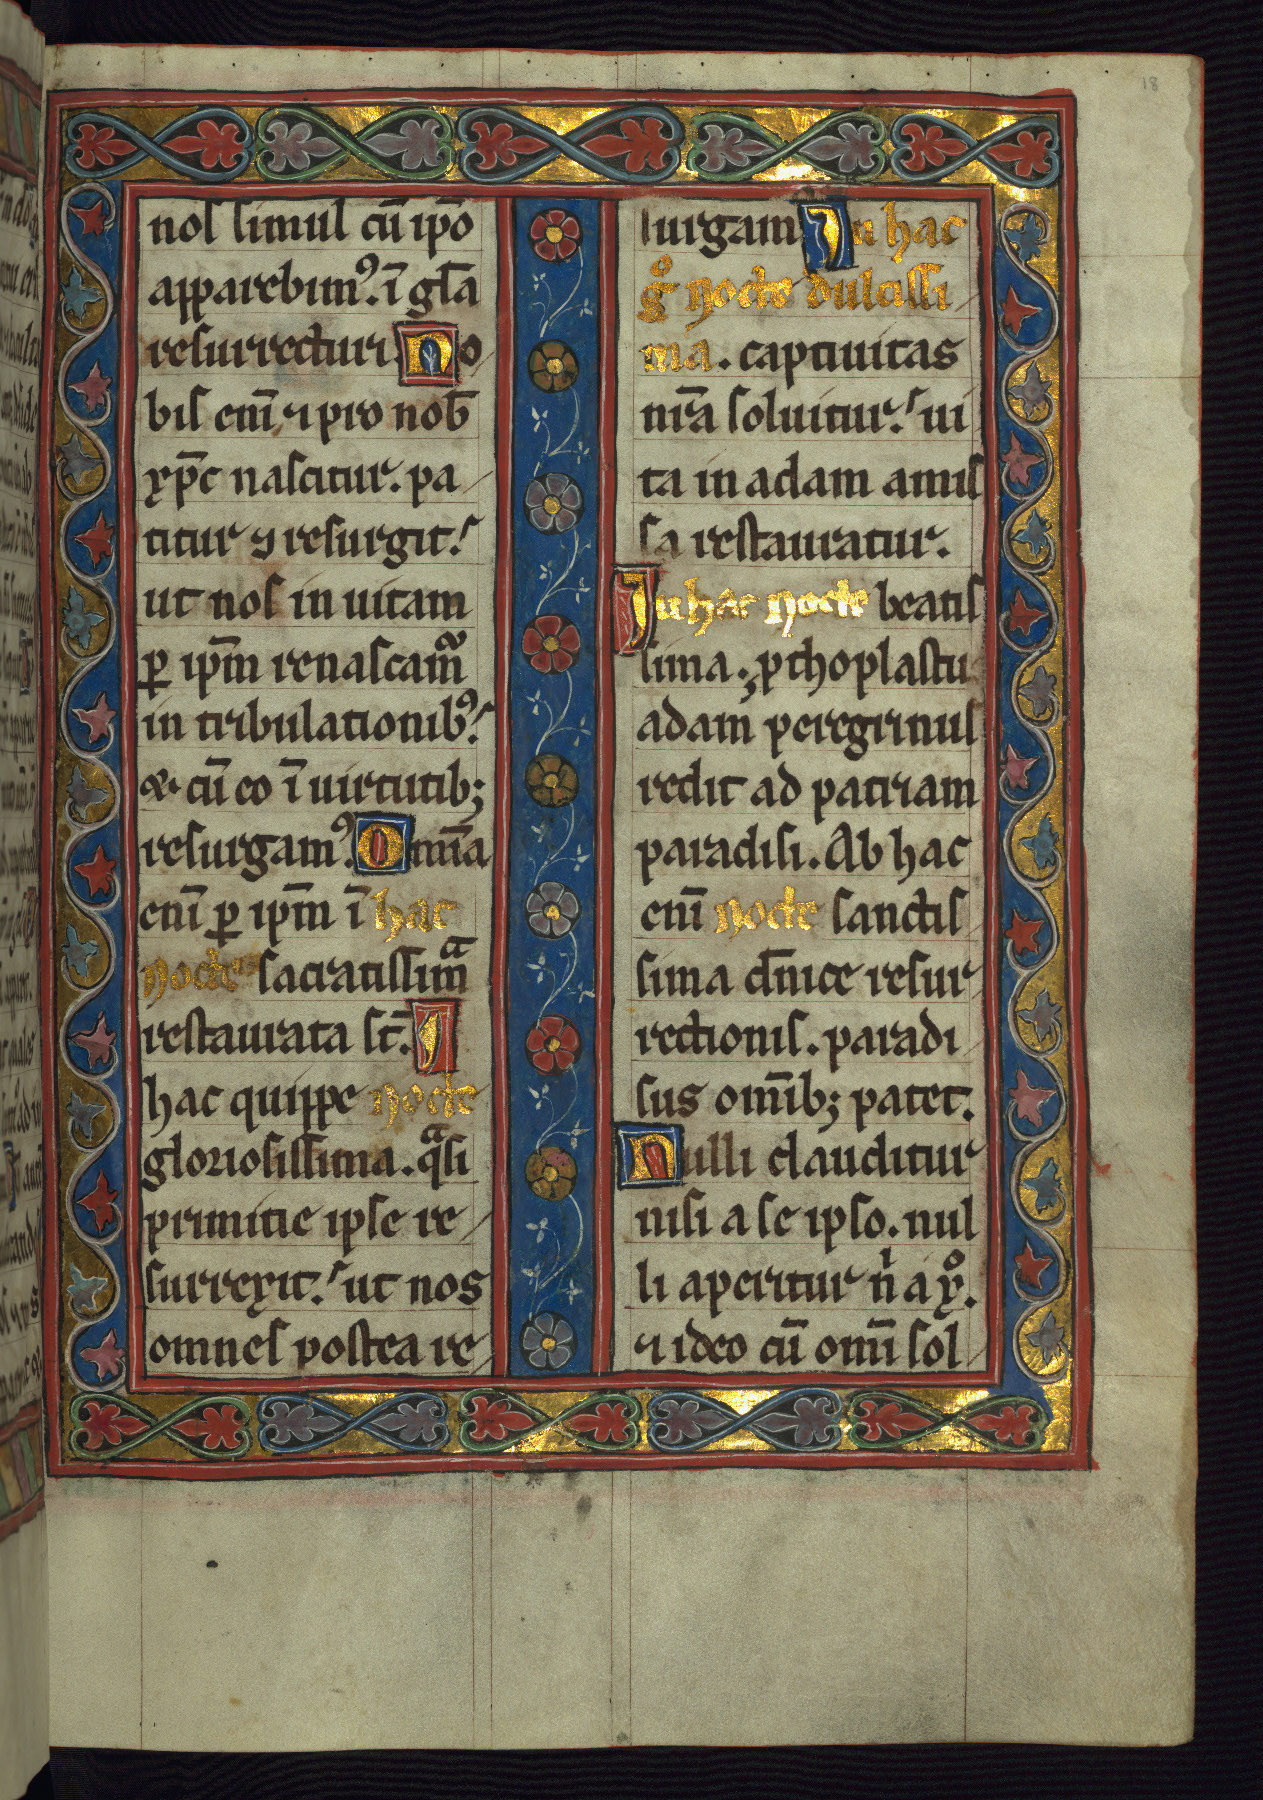 18
nos simul cū ip̄o
apparebim⁹. ī gl̄a
resurrecturi. No
bis enī ⁊ pro nob̄
xp̄c nascitur. pa
titur ⁊ resurgit.
ut nos in uitam
ꝑ ip̄m renascam᷑
in tribulationib⁹.
& cū eo ī uirtutib;
resurgam⁹. Omīa
enī ꝑ ip̄m ī hac
nocte sacratissimͣ
restaurata st̄. I
hac quippe nocte
gloriosissima. qͣsi
primitie ipse re
surrexit. ut nos
omnes postea re
surgam In hac
gͦ nocte dulcissi
ma. captiuitas
nr̄a soluitur. ui
ta in adam amis
sa restauratur.
In hac nocte beatis
sima. ꝓthoplastu
adam peregrinus
redit ad patriam
paradisi. Ab hac
enī nocte sanctis
sima dn̄ice resur
rectionis. paradi
sus om̄ib; patet.
Nulli clauditur
nisi a se ipso. nul
li aperitur n̍ a xͦ.
⁊ ideo cū omī sol